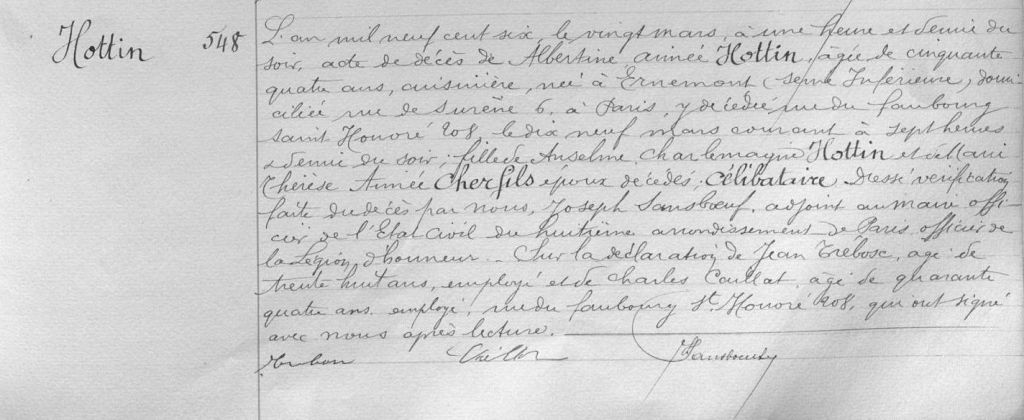 Hottin 548
L'an mil neuf cent six, le vingt mars, à une heure et demie du
soir, acte de décès de Albertine aimée Hottin, âgée de cinquante
quatre ans, cuisinière, née à Ernemont (Seine Inférieure) domi
ciliée rue de Surène 6, à Paris, y décédée rue du faubourg
saint Honoré 208, le dix neuf mars courant à sept heures
& demie du soir; fille de Anselme Charlemagne Hottin et de Marie
Thérèse Aimée Cherfils époux décédés; Célibataire. Dressé vérification
faite du décès par nous, Joseph Sansboeuf, adjoint au maire offi-
cier de l'Etat Civil du huitième arrondissement de Paris, officier de
la Légion d'honneur. - Sur la déclaration de Jean Trebosc, âgé de
trente huit ans, employé et de Charles Caillat, âgé de quarante
quatre ans, employé, rue du faubourg St. Honoré 208, qui ont signé
avec nous après lecture.
Sansboeuf